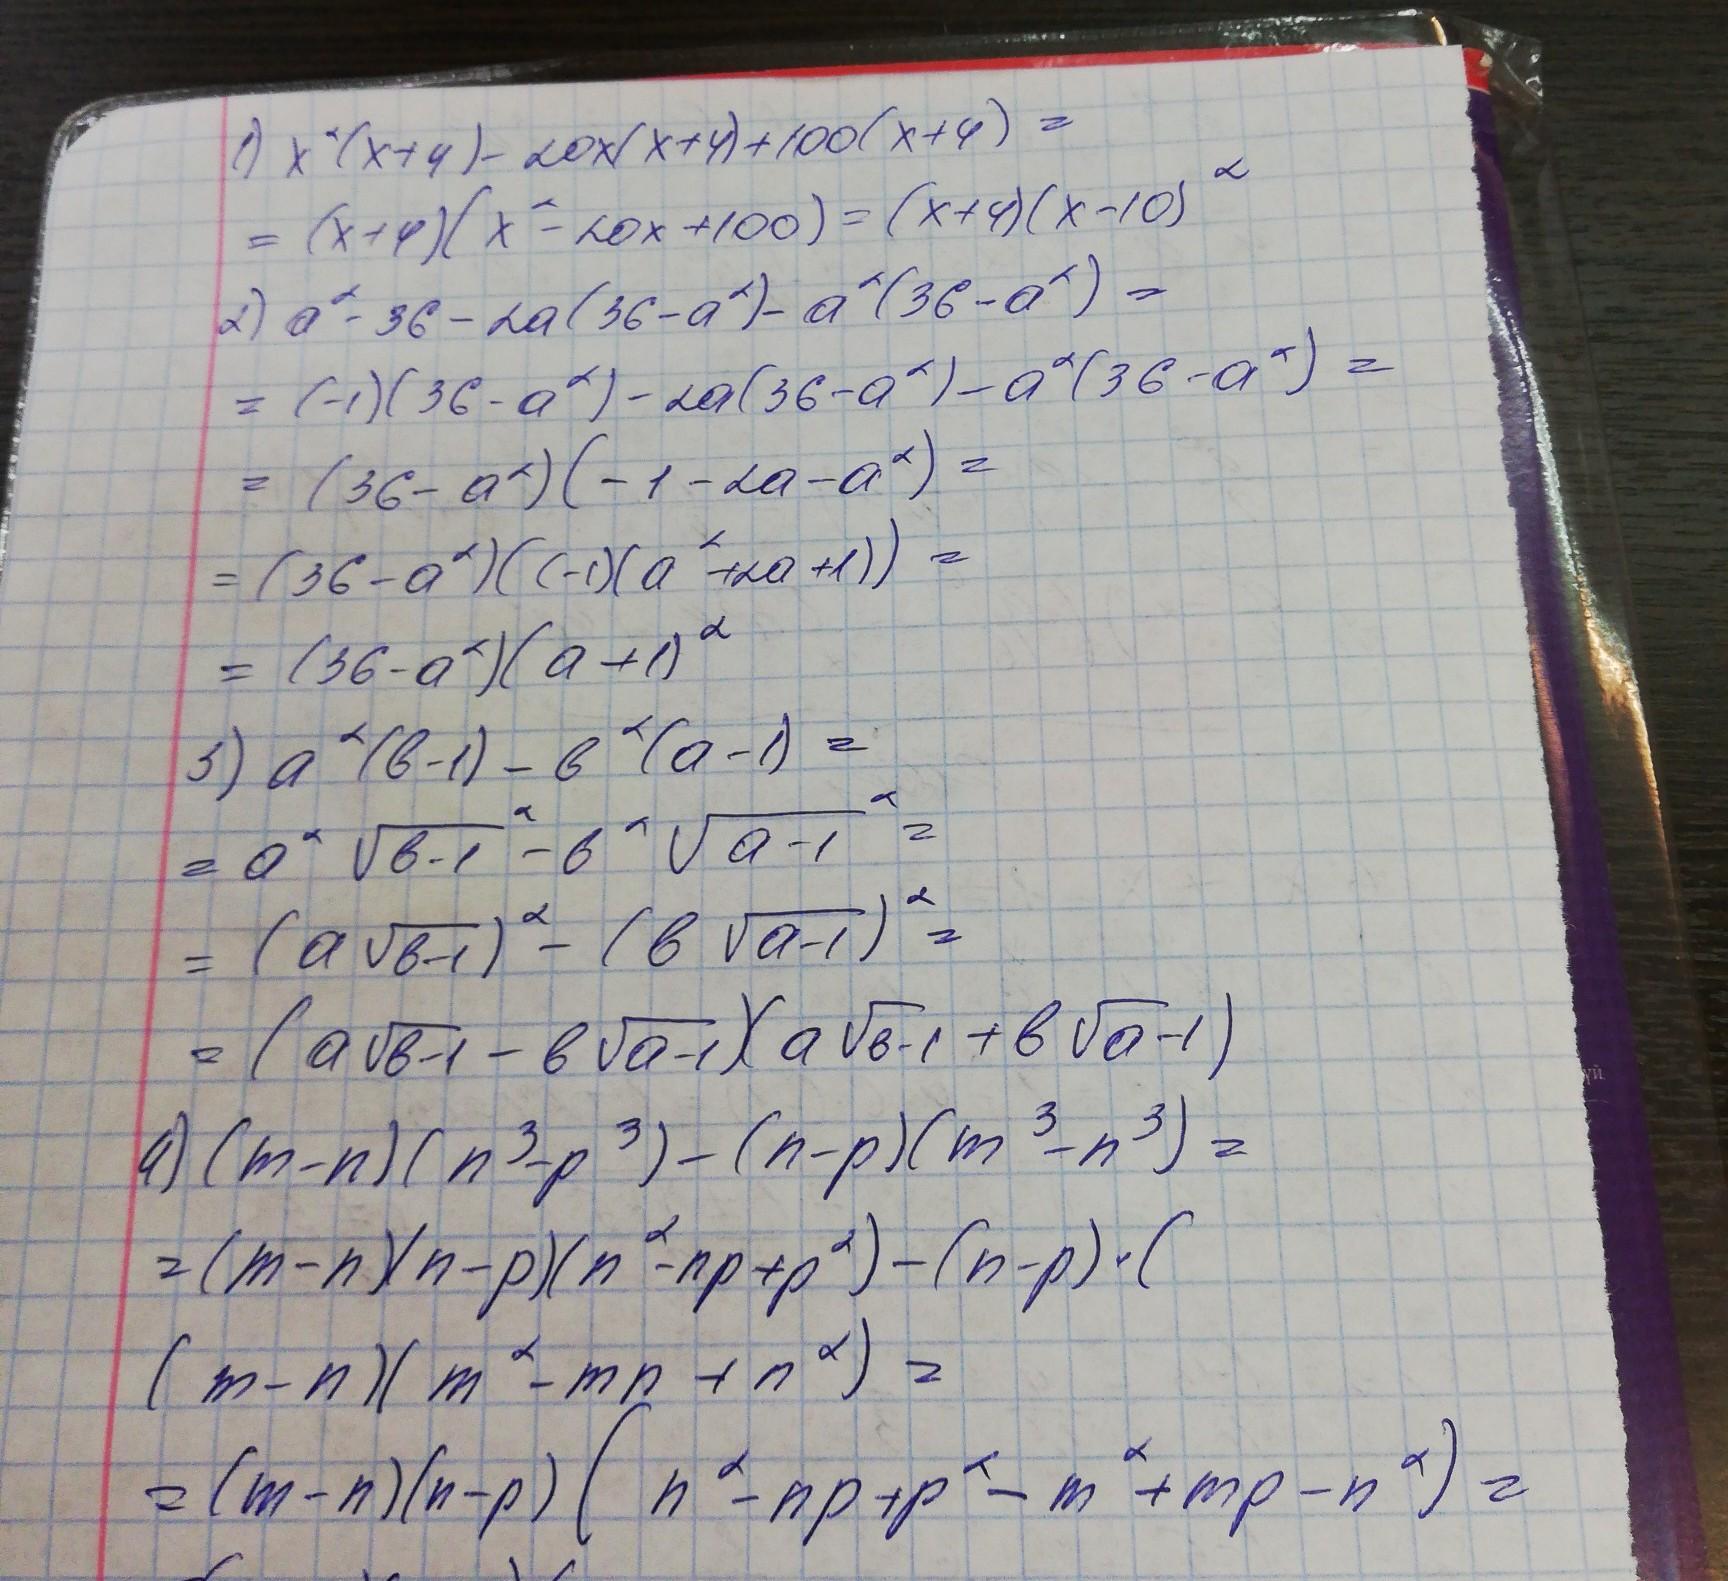 1) x²(x+4) - 20x(x+4) + 100(x+4) =
= (x+4)(x² - 20x + 100) = (x+4)(x-10)²
2) a² - 36 - 2a(36-a²) - a²(36-a²) =
= (-1)(36-a²) - 2a(36-a²) - a²(36-a²) =
= (36-a²)(-1-2a-a²) =
= (36-a²)((-1)(a²+2a+1)) =
= (36-a²)(a+1)²
3) a²(в-1) - в²(a-1) =
= a²√(в-1)² - в²√(a-1)² =
= (a√(в-1))² - (в√(a-1))² =
= (a√(в-1) - в√(a-1))(a√(в-1) + в√(a-1))
4) (m-n)(n³-p³) - (n-p)(m³-n³) =
= (m-n)(n-p)(n²-np+p²) - (n-p)·(
(m-n)(m²-mn+n²) =
= (m-n)(n-p)(n²-np+p²-m²+mp-n²) =
уй.